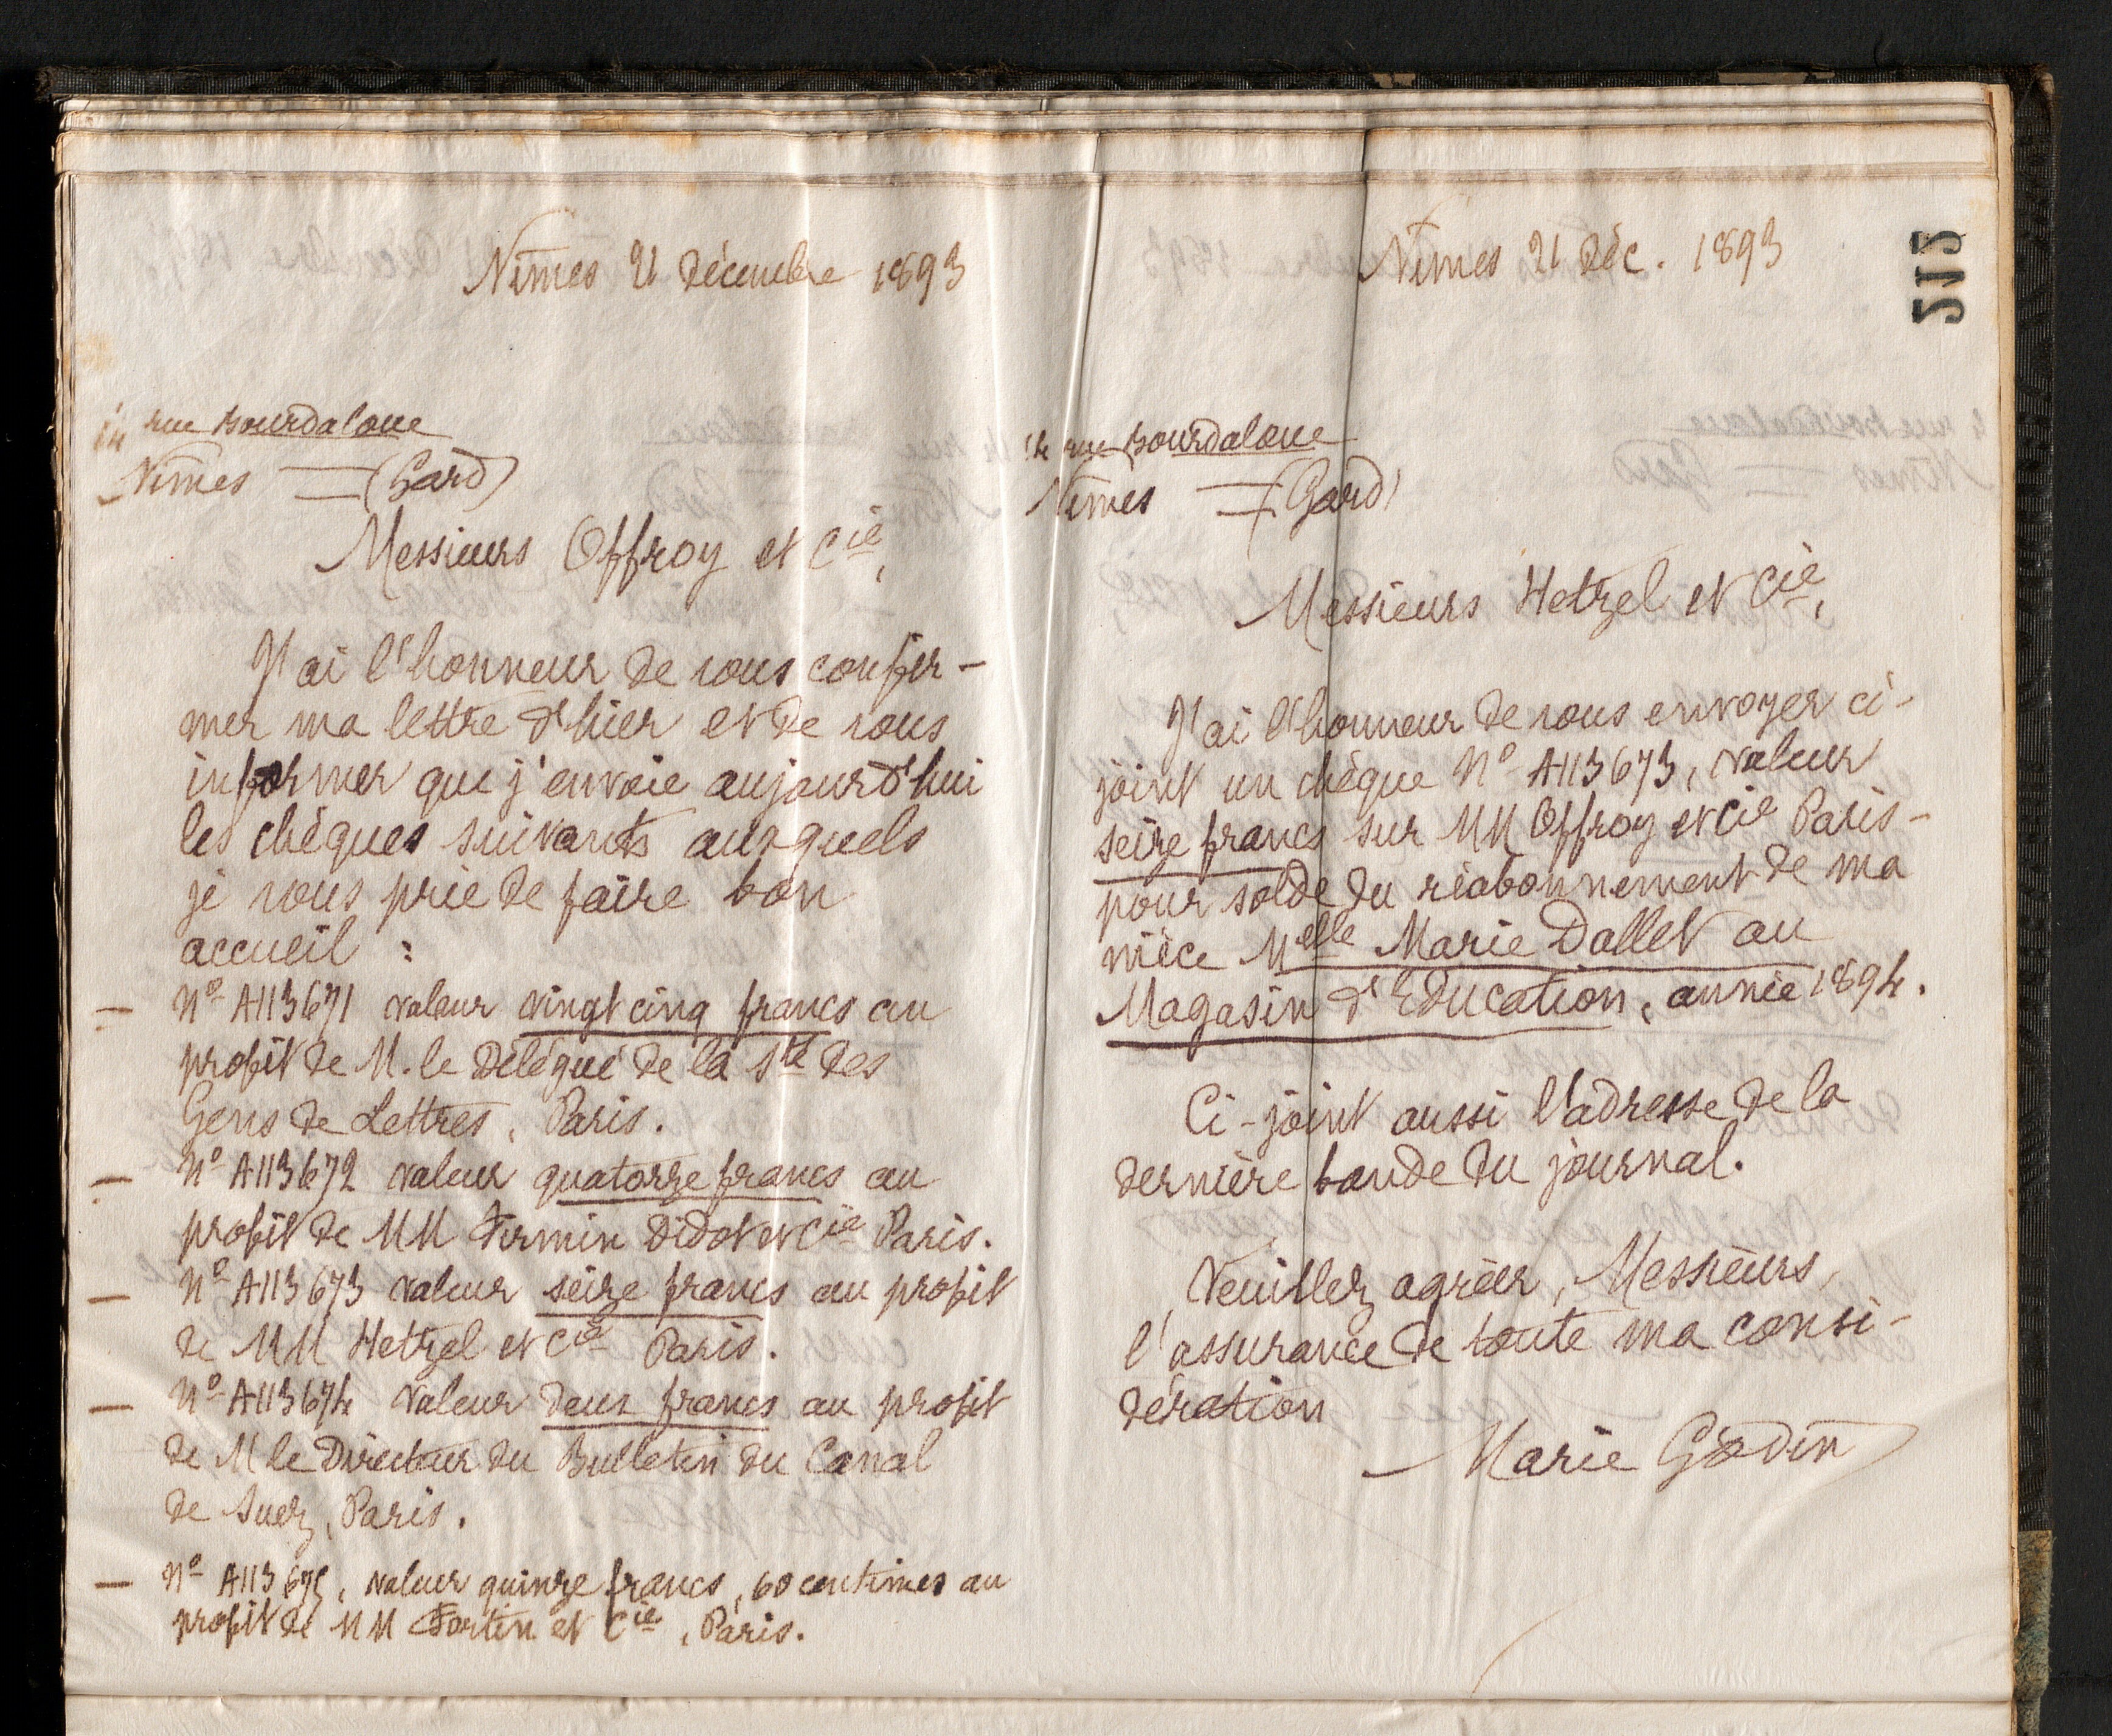 Nîmes 21 Décembre 1893
14 rue Bourdaloue
Nîmes — (Gard)
Messieurs Offroy et Cie,
J'ai l'honneur de vous confir-
mer ma lettre d'hier et de vous
informer que j'envoie aujourd'hui
les chèques suivants auxquels
je vous prie de faire bon
accueil :
— N° A113671 valeur vingt cinq francs au
profit de M. le Délégué de la Sté des
Gens de Lettres, Paris.
— N° A113672 valeur quatorze francs au
profit de MM Firmin Didot et Cie Paris.
— N° A113673 valeur seize francs au profit
de MM Hetzel et Cie Paris.
— N° A113674 valeur deux francs au profit
de M le Directeur du Bulletin du Canal
de Suez, Paris.
— N° A113675, valeur quinze francs, 60 centimes au
profit de MM Fortin et Cie, Paris.
515
Nîmes 21 Déc. 1893
14 rue Bourdaloue
Nîmes — (Gard)
Messieurs Hetzel et Cie,
J'ai l'honneur de vous envoyer ci-
joint un chèque N° A113673, valeur
seize francs sur MM Offroy et Cie Paris-
pour solde du réabonnement de ma
nièce Melle Marie Dallet au
Magasin d'Education, année 1894.
Ci-joint aussi l'adresse de la
dernière bande du journal.
Veuillez agréer, Messieurs,
l'assurance de toute ma consi-
dération
Marie Godin